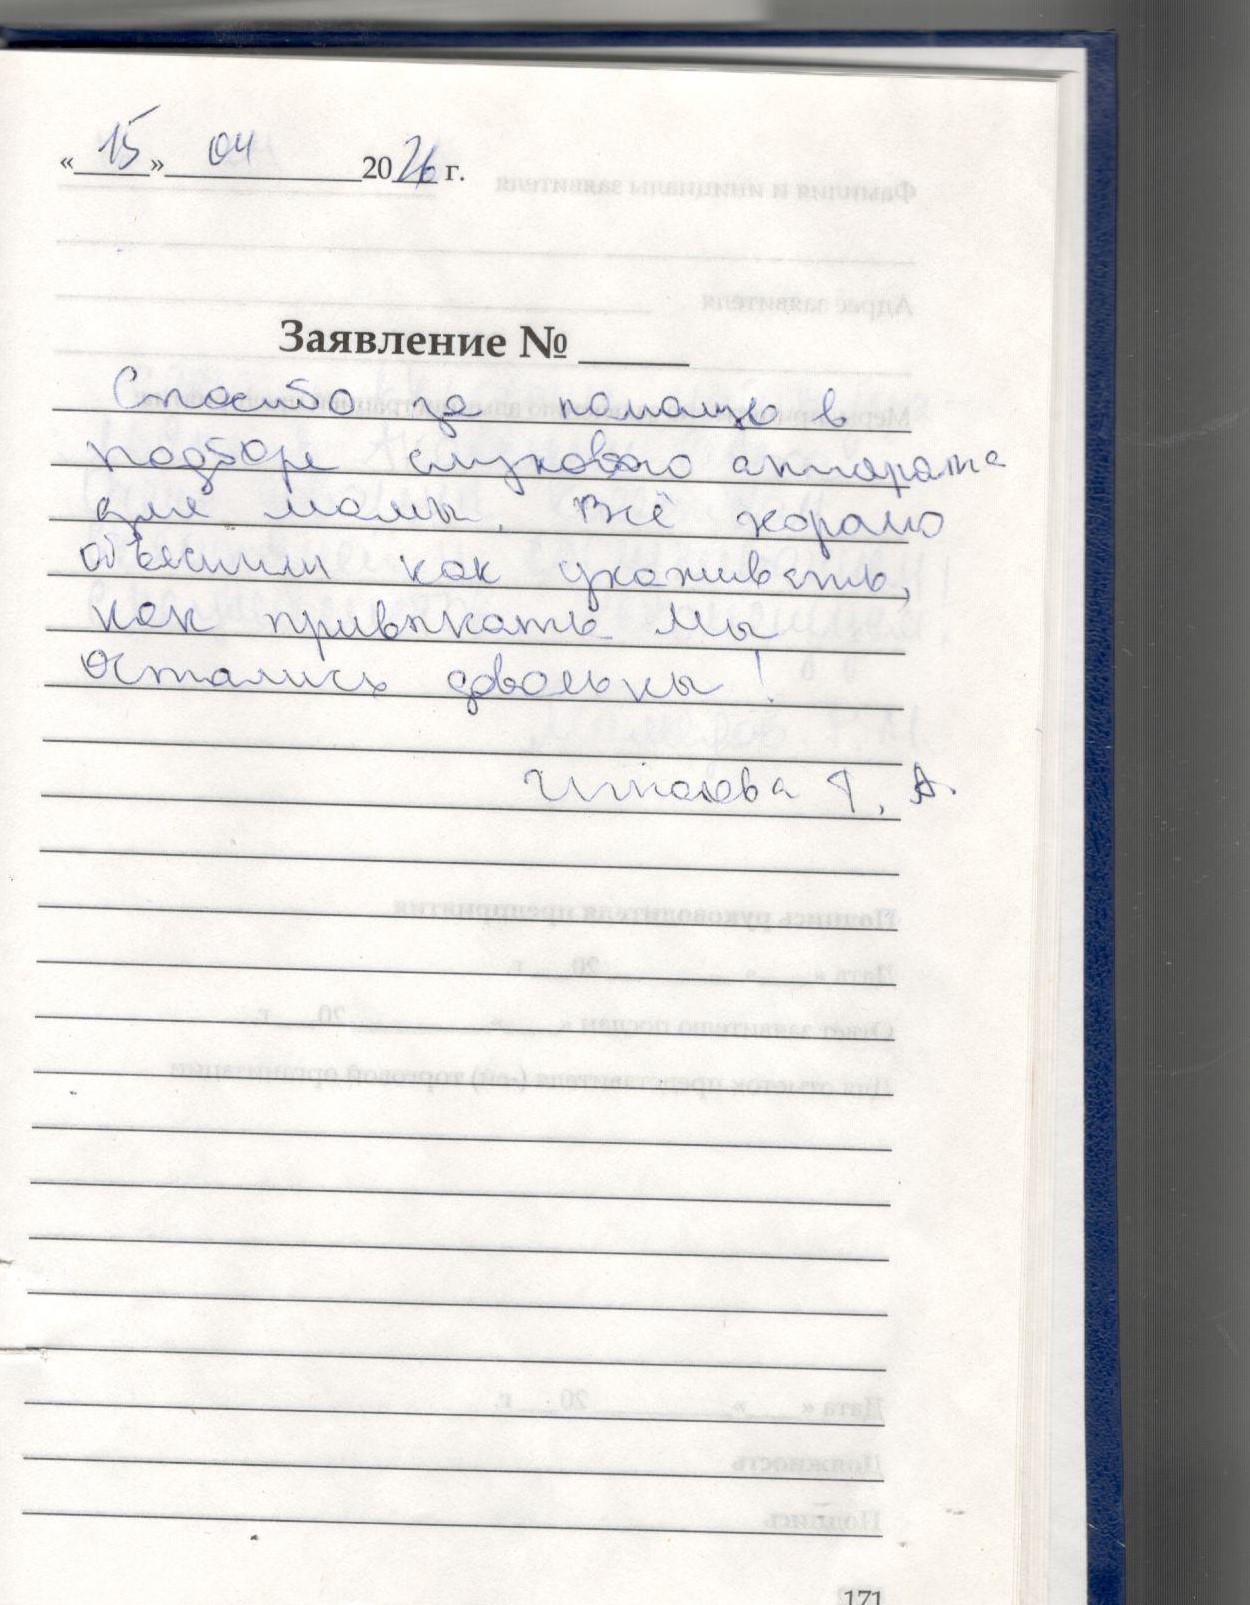 «15» 04 2026 г.
Заявление № ____
Спасибо за помощь в
подборе слухового аппарата
для мамы. Всё хорошо
объяснили как ухаживать,
как привыкать. Мы
остались довольны!
Г. А.
171